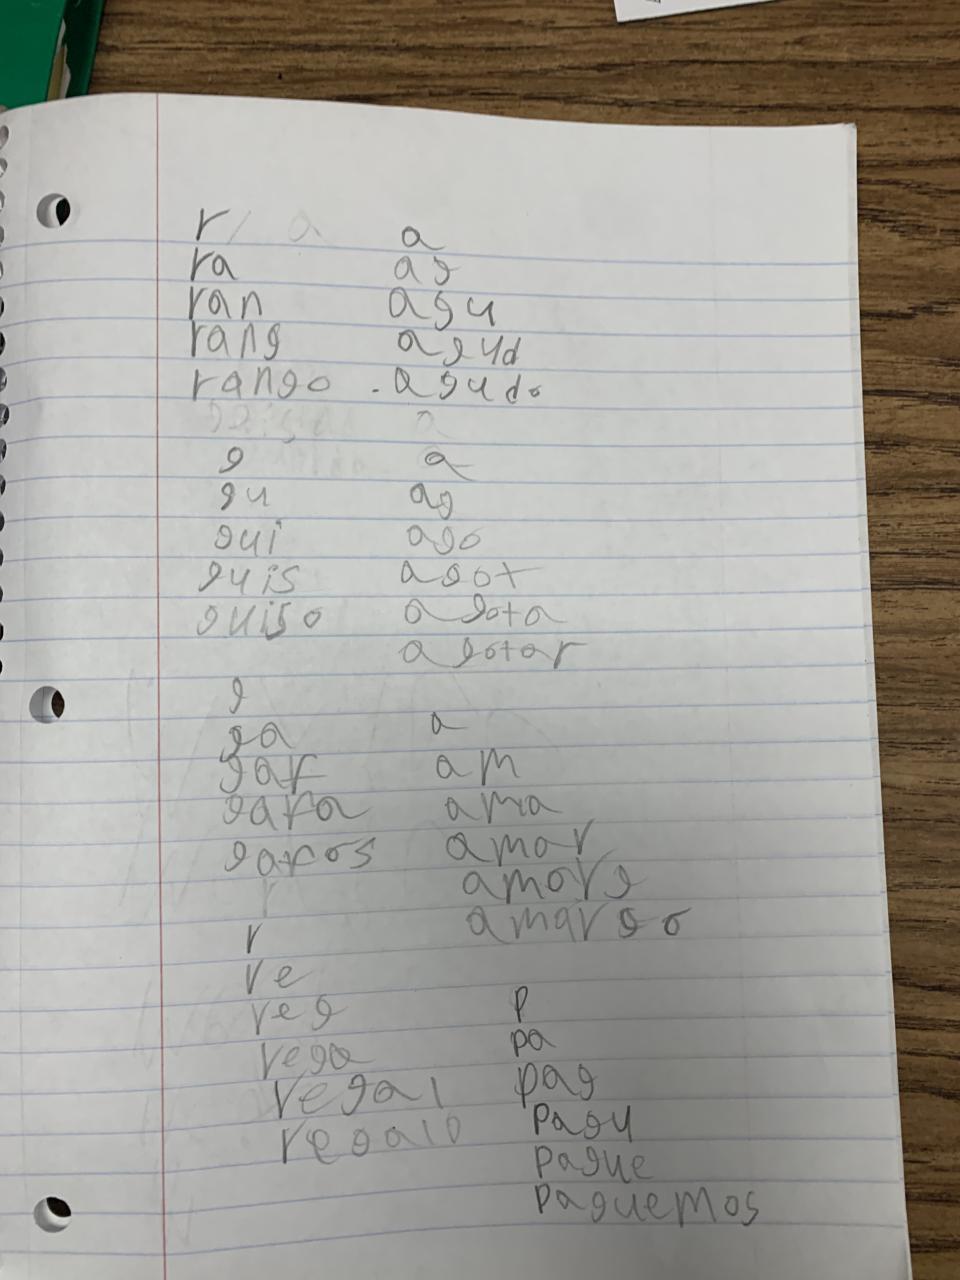 r a
ra
ran
rang
rango
a
ag
agu
agud
. agudo
g
gu
gui
guis
guiso
a
ag
ago
agot
agota
agotar
g
ga
gar
gara
garos
a
am
ama
amar
amarg
amargo
r
re
reg
rega
regal
regalo
p
pa
pag
pagu
pague
paguemos